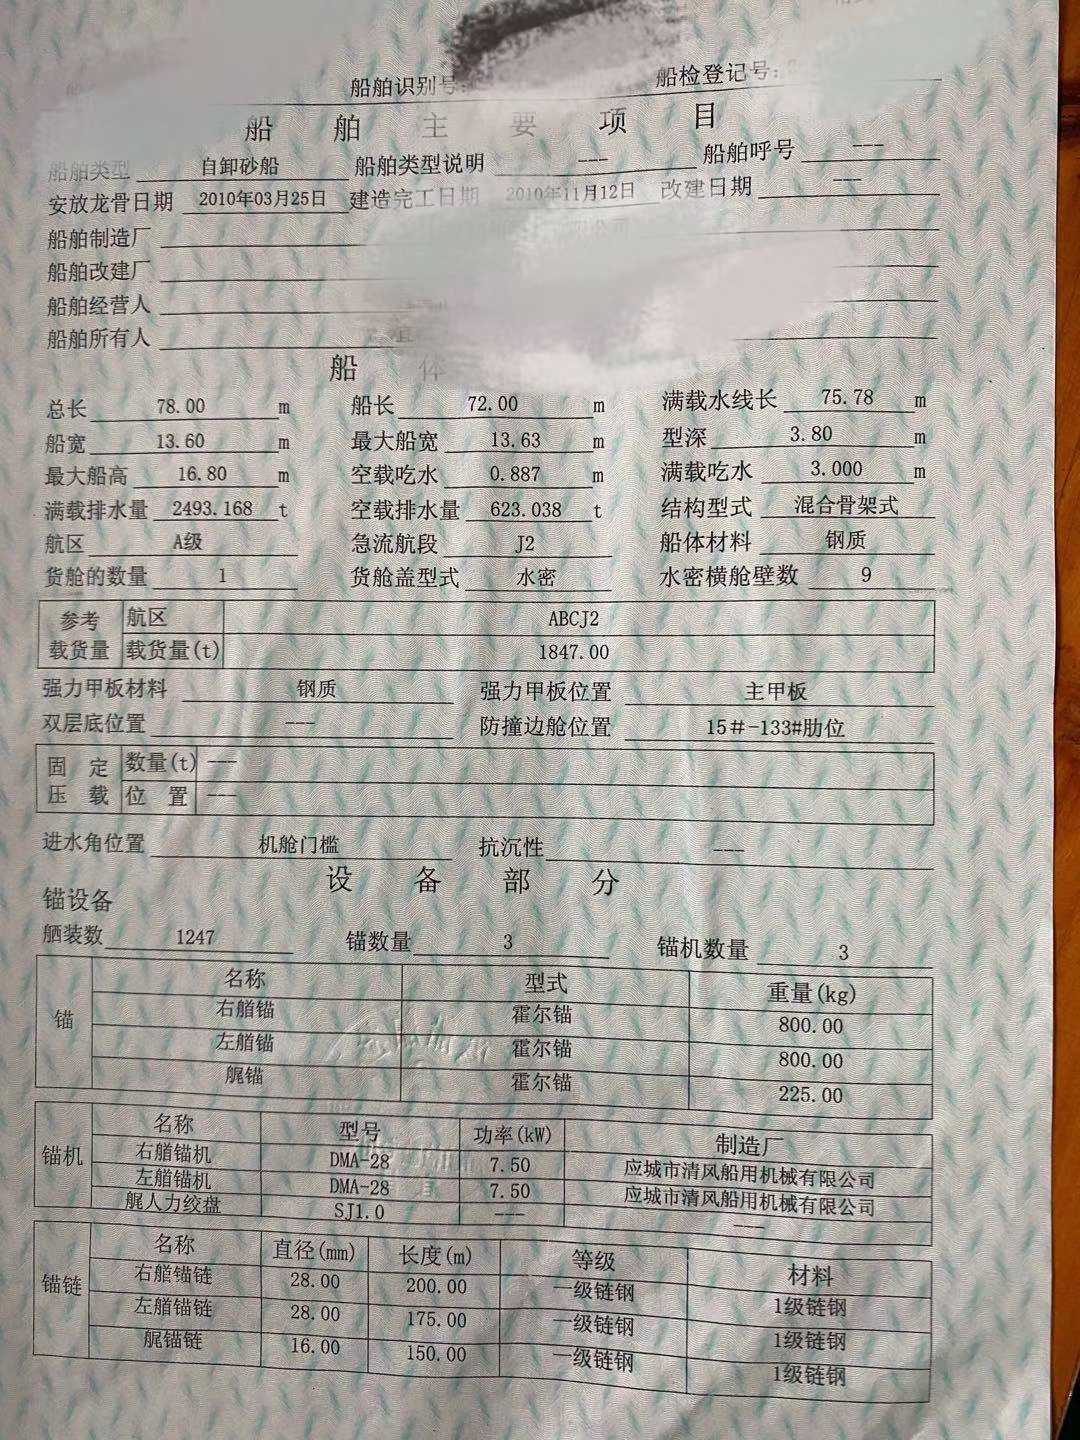 船舶识别号: 船检登记号:
船舶主要项目
船舶类型 自卸砂船 船舶类型说明 --- 船舶呼号 ---
安放龙骨日期 2010年03月25日 建造完工日期 2010年11月12日 改建日期 ---
船舶制造厂
船舶改建厂
船舶经营人
船舶所有人
船体
总长 78.00 m 船长 72.00 m 满载水线长 75.78 m
船宽 13.60 m 最大船宽 13.63 m 型深 3.80 m
最大船高 16.80 m 空载吃水 0.887 m 满载吃水 3.000 m
满载排水量 2493.168 t 空载排水量 623.038 t 结构型式 混合骨架式
航区 A级 急流航段 J2 船体材料 钢质
货舱的数量 1 货舱盖型式 水密 水密横舱壁数 9
参考载货量 航区 ABCJ2
载货量(t) 1847.00
强力甲板材料 钢质 强力甲板位置 主甲板
双层底位置 --- 防撞边舱位置 15#-133#肋位
固定压载 数量(t) ---
位置 ---
进水角位置 机舱门槛 抗沉性 ---
设备部分
锚设备
舾装数 1247 锚数量 3 锚机数量 3
锚 名称 型式 重量(kg)
右艏锚 霍尔锚 800.00
左艏锚 霍尔锚 800.00
艉锚 霍尔锚 225.00
锚机 名称 型号 功率(kW) 制造厂
右艏锚机 DMA-28 7.50 应城市清风船用机械有限公司
左艏锚机 DMA-28 7.50 应城市清风船用机械有限公司
艉人力绞盘 SJ1.0 --- ---
锚链 名称 直径(mm) 长度(m) 等级 材料
右艏锚链 28.00 200.00 一级链钢 1级链钢
左艏锚链 28.00 175.00 一级链钢 1级链钢
艉锚链 16.00 150.00 一级链钢 1级链钢